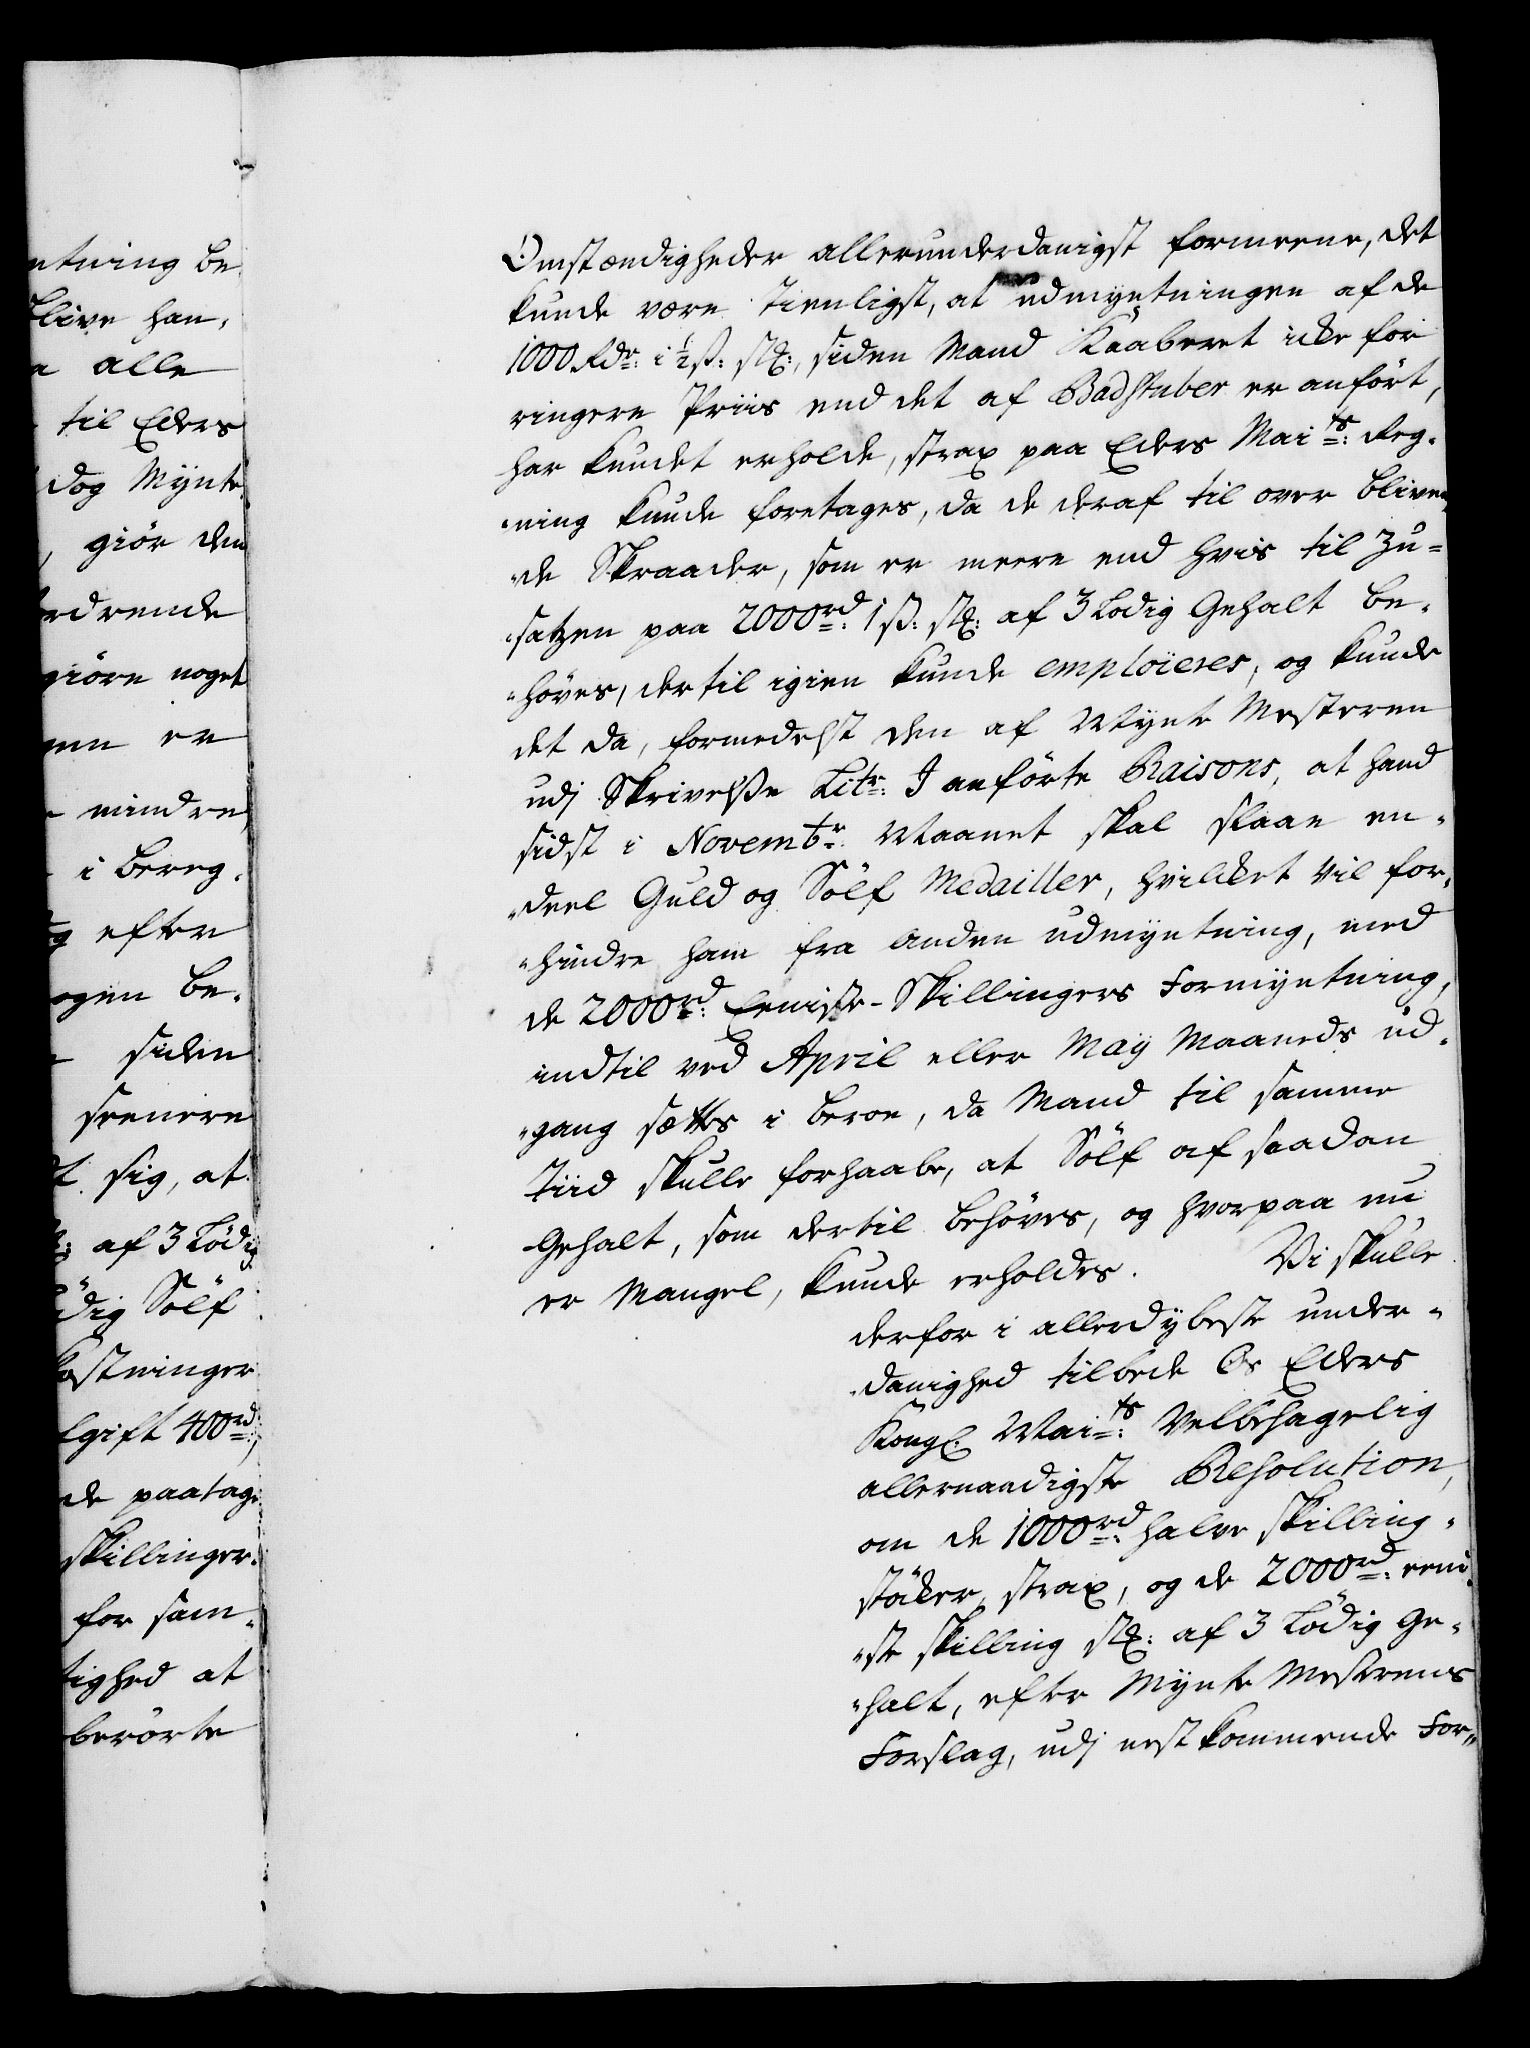 ntning be
blive han,
n alle
til Eders
dog Mynte
, giör den
rdrende
giöre noget
nn er
mindre
i bereg,
og efter
ogen be,
siden
seenere
sig, at
af 3 Lödig
ödig Sölf
kostninger
lgift 400rd:,
de paatage
skillinger.
for sam,
tighed at
berörte
Omstændigheder allerunderdanigst formeene, det
kunde være tienligst, at udmyntningen af de
1000 Rdr: i ½ ß: st:, siden Mand Kaaberet icke for
ringere Priis end det af Badstuber er anfört,
har kundet erholde, strax paa Eders Maits: Reg,
ning kunde foretages, da de deraf til over bliven,
de Skraader, som er meere end hvis til Zu=
satzen paa 2000rd: 1 ß: st: af 3 Lödig Gehalt be,
höves, der til igien kunde emploïeres, og kunde
det da, formedelst den af Mynte Mesteren
udj Skrivelße Litr: I anförte Raisons, at hand
sidst i Novembr: Maanet skal slaae en,
deel Guld og Sölf Medailler, hvilcket vil for,
hindre ham fra anden udmyntning, med
de 2000rd: Eeniste-Skillingers Formyntning,
indtil ved April eller Maÿ Maaneds ud,
gang sættes i beroe, da Mand til samme
Tiid skulle forhaabe, at Sölf af saadan
Gehalt, som dertil behöves, og hvorpaa nu
er Mangel, kunde erholdes. Vi skulle
derfor i allerdybeste under,
danighed tilbede Os Eders
Kongl. Maits: Velbehagelig
allernaadigste Resolution,
om de 1000rd: halve skilling,
stöcker strax, og de 2000rd: eeni,
ste skilling st: af 3 Lödig Ge,
halt, efter Mynte Mesterens
Forslag, udj nest kommende For,,